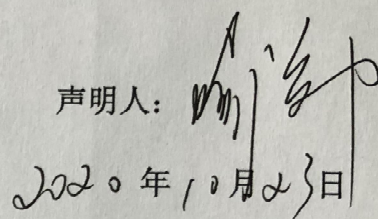 声明人：
2020年10月23日